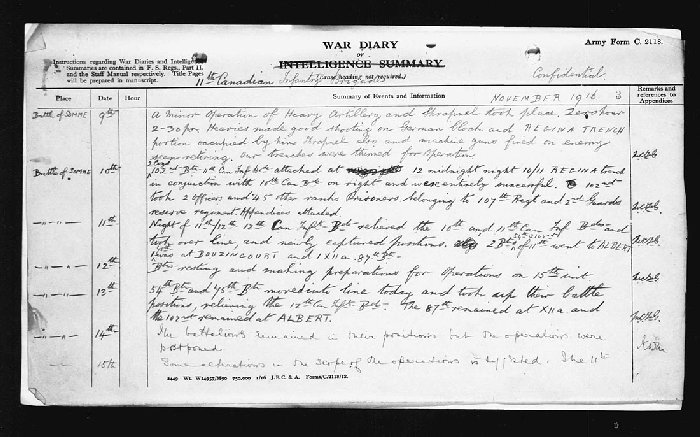 WAR DIARY
or
INTELLIGENCE SUMMARY.
(Erase heading not required.)
Army Form C. 2118.
Instructions regarding War Diaries and Intelligence
Summaries are contained in F. S. Regs., Part II.
and the Staff Manual respectively. Title Pages
will be prepared in manuscript.
11th Canadian Infantry Brigade
Confidential
Place Date Hour Summary of Events and Information NOVEMBER 1916 3 Remarks and references to Appendices
Battle of SOMME 9th A Minor Operation of Heavy Artillery and Shrapnel took place, Zero hour
2-30 pm Heavies made good shooting on German Block and REGINA TRENCH
portion occupied by him Shrapnel and machine guns fired on enemy
seen retiring. Our trenches were thinned for operation
Battle of SOMME 10th 102nd Btn 11th Can Inf Bde attached at 12 midnight night 10/11 REGINA trench
in conjunction with 10th Can Bde on right and were entirely successful. 102nd
took 2 officers and 45 other ranks Prisoners belonging to 107th Regt and 2nd Guards
reserve regiment. Appendices attached
-"- 11th Night of 11th/12th 12th Can Inft Bde relieved the 10th and 11th Can Inf Bdes and
took over line and newly captured positions. 2 Btns of 11th went to ALBERT
1 was at BOUZINCOURT and 1 XIIa. 87th Btn
-"- 12th Btns resting and making preparations for operations on 15th inst
-"- 13th 54th Btn and 75th Btn moved into line today and took up their battle
positions, relieving the 12th Can Inft Bde. The 87th remained at XIIa and
the 102nd remained at ALBERT.
-"- 14th The battalions remained in their positions but the operations were
postponed
15th Some alterations in the scope of the operations is suggested. The 11th